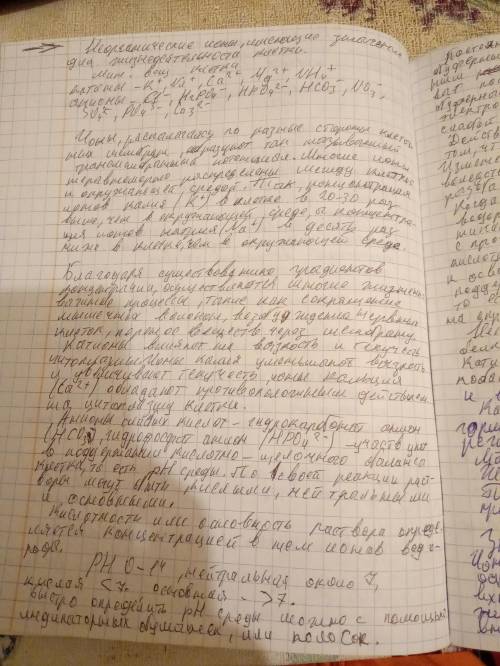 → Неорганические ионы, имеющие значение
для жизнедеятельности клетки.
Мин. вещ клетки
катионы - K⁺, Na⁺, Ca²⁺, Mg²⁺, NH₄⁺
анионы - Cl⁻, H₂PO₄⁻, HPO₄²⁻, HCO₃⁻, NO₃⁻,
SO₄²⁻, PO₄³⁻, CO₃²⁻
Ионы, располагаясь по разные стороны клеточ
ных мембран, образуют так называемый
трансмембранный потенциал. Многие ионы
неравномерно распределены между клеткой
и окружающей средой. Так, концентрация
ионов калия (K⁺) в клетке в 20-30 раз
выше, чем в окружающей среде, а концентра-
ция ионов натрия (Na⁺) в десять раз
ниже в клетке, чем в окружающей среде.
Благодаря существованию градиентов
концентрации, осуществляются многие жизненно
важные процессы, такие как сокращение
мышечных волокон, возбуждение нервных
клеток, перенос веществ через мембрану.
Катионы влияют на вязкость и текучесть
цитоплазмы. Ионы калия уменьшают вязкость
и увеличивают текучесть, ионы кальция
(Ca²⁺) обладают противоположным действием
на цитоплазму клетки.
Анионы слабых кислот - гидрокарбонат анион
(HCO₃⁻), гидрофосфат анион (HPO₄²⁻) - участвуют
в поддержании кислотно-щелочного баланса
клетки, то есть pH среды. По своей реакции раст-
воры могут быть кислыми, нейтральными
и основными.
Кислотность или основность раствора опреде-
ляется концентрацией в нем ионов водо-
рода.
PH 0-14, нейтральная около 7,
кислая <7, основная - >7.
быстро определить pH среды можно с помощью
индикаторных бумажек, или полосок.